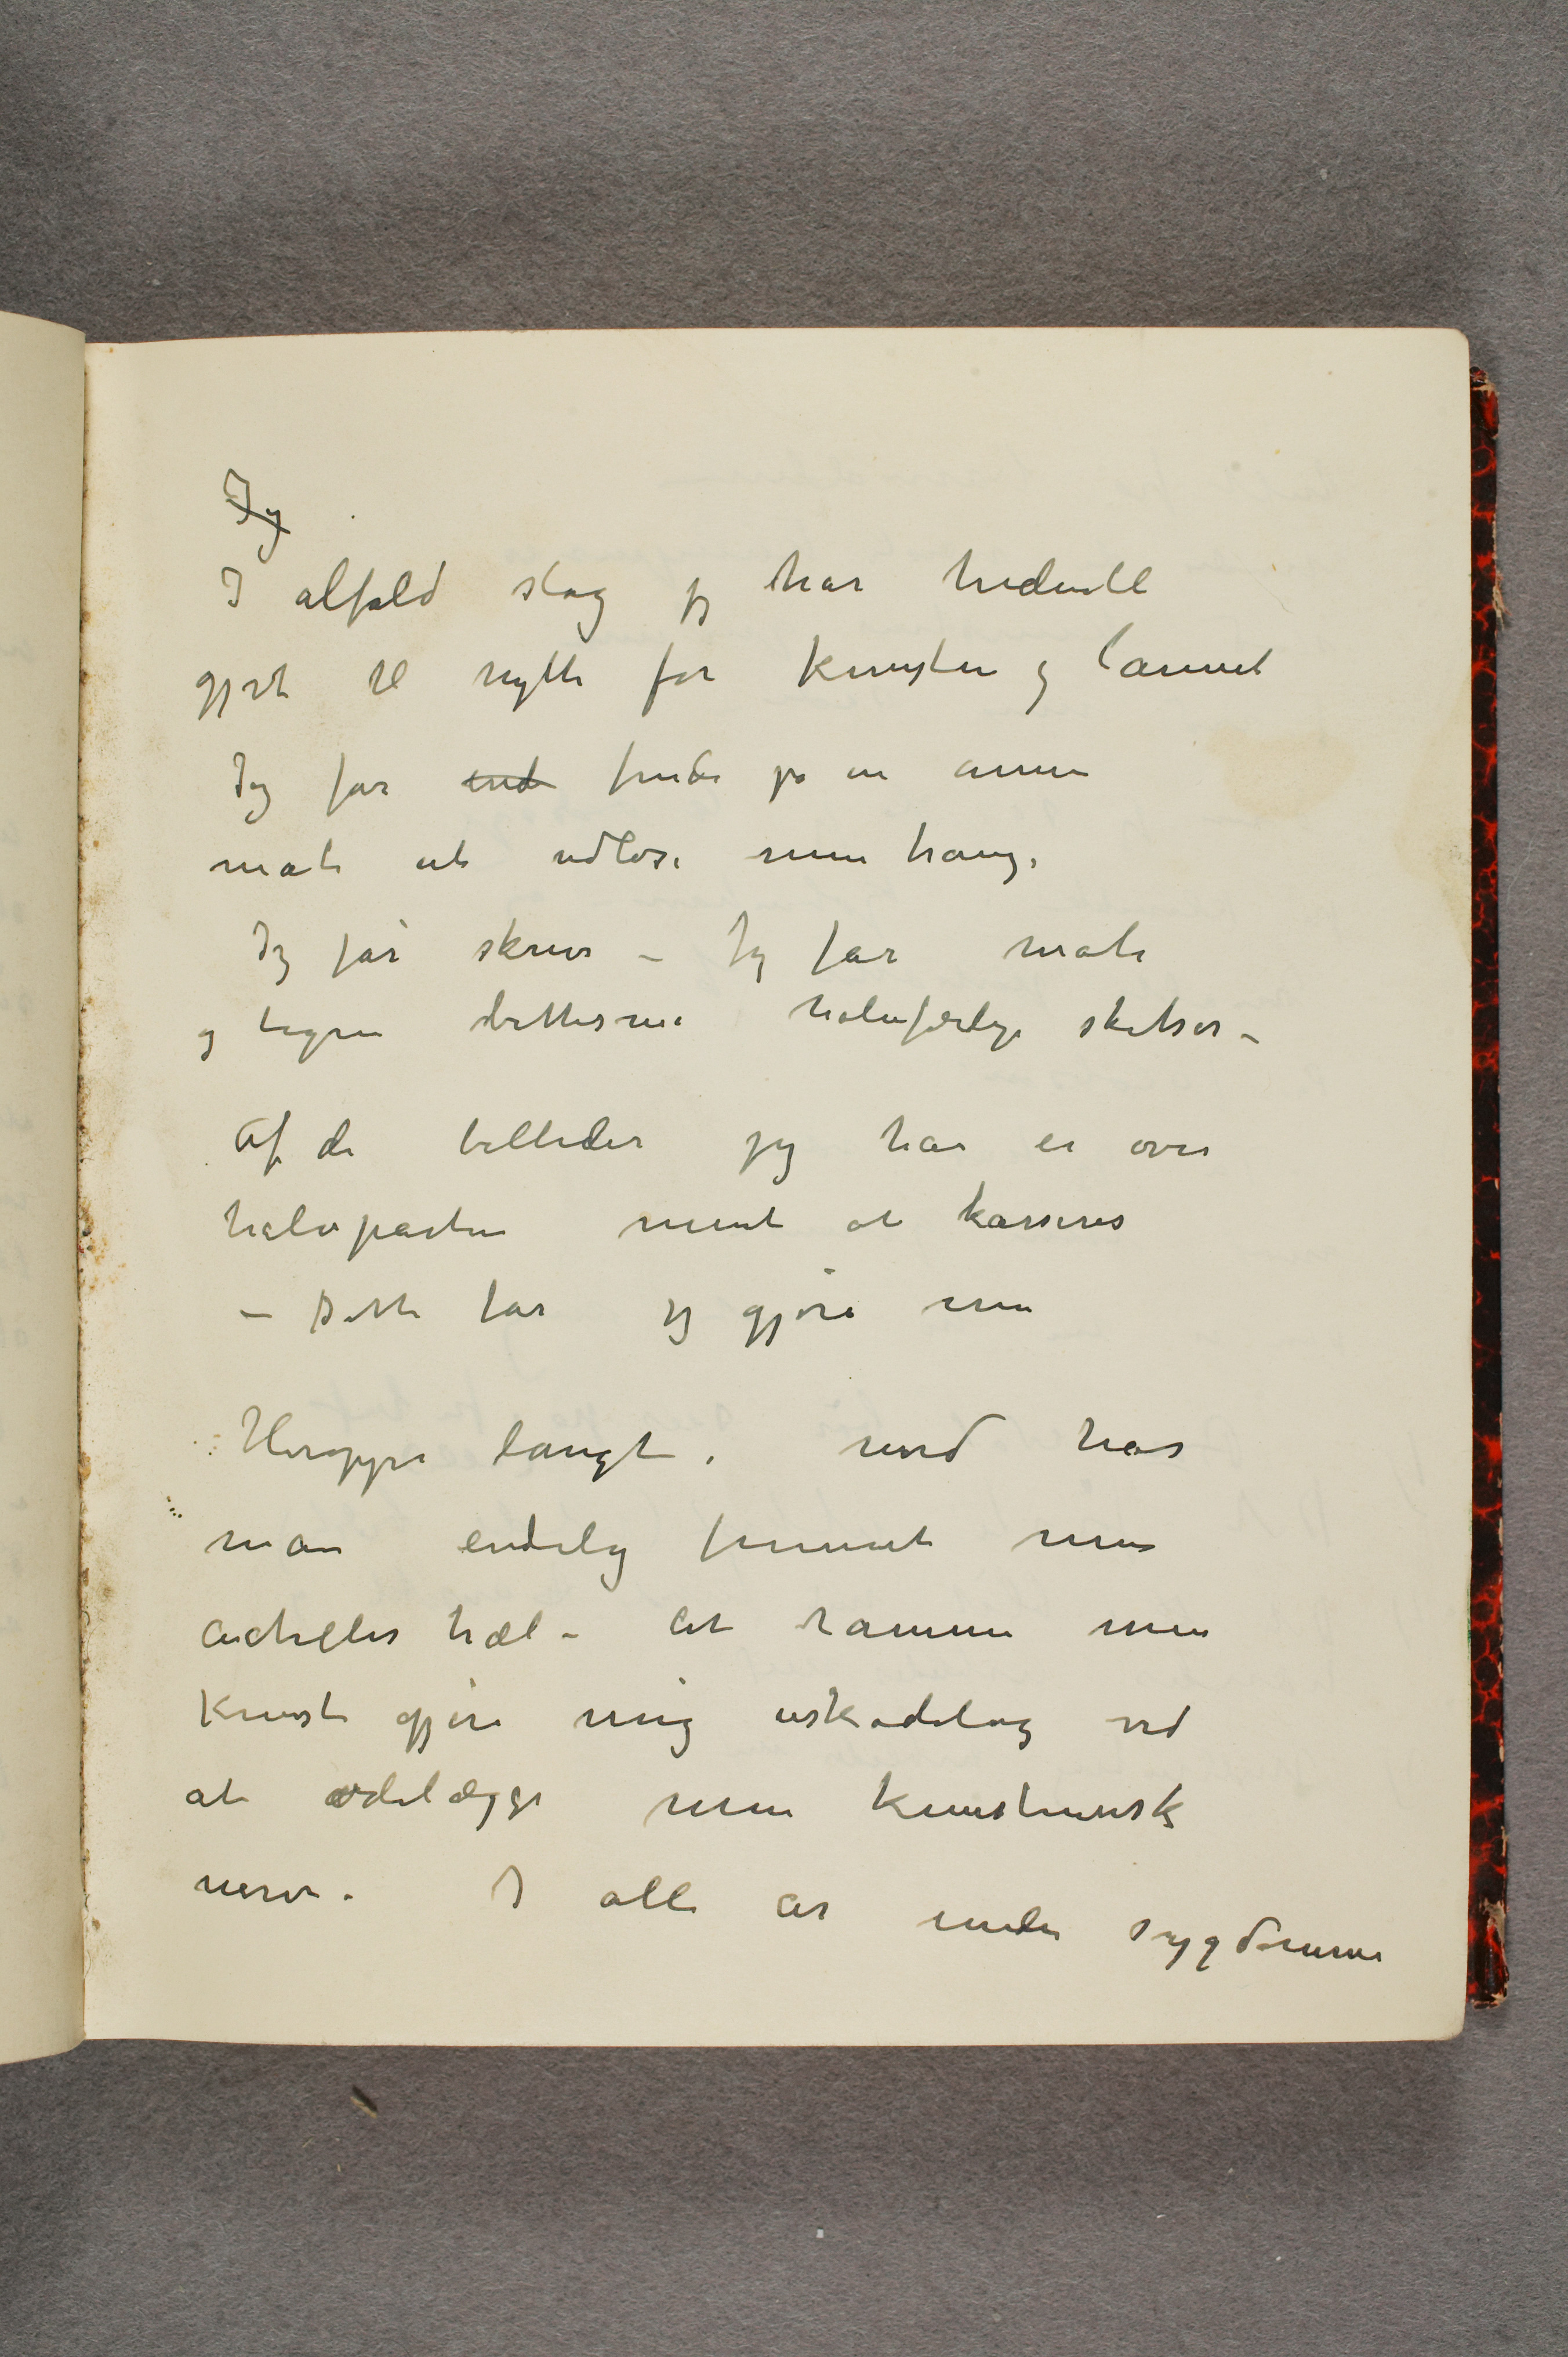 Jeg
I alfald slag jeg har hidentil
gjort til nytte for kunsten og lannet
Jeg får end finde på en annen
måte at udløse min trang.
Jeg får skrive – Jeg får male
og tegne bittesmå halvfærdige skitser –
Af de billeder jeg har er over
halvparten ment at kasseres
– Dette får jeg gjøre nu
Heroppe langt i nord har
man endelig funnet min
achilles hæl – At ramme min
Kunst gjøre mig uskadelig ved
at ødelægge min kunstnerisk
nerve. I alle år under sygdomme